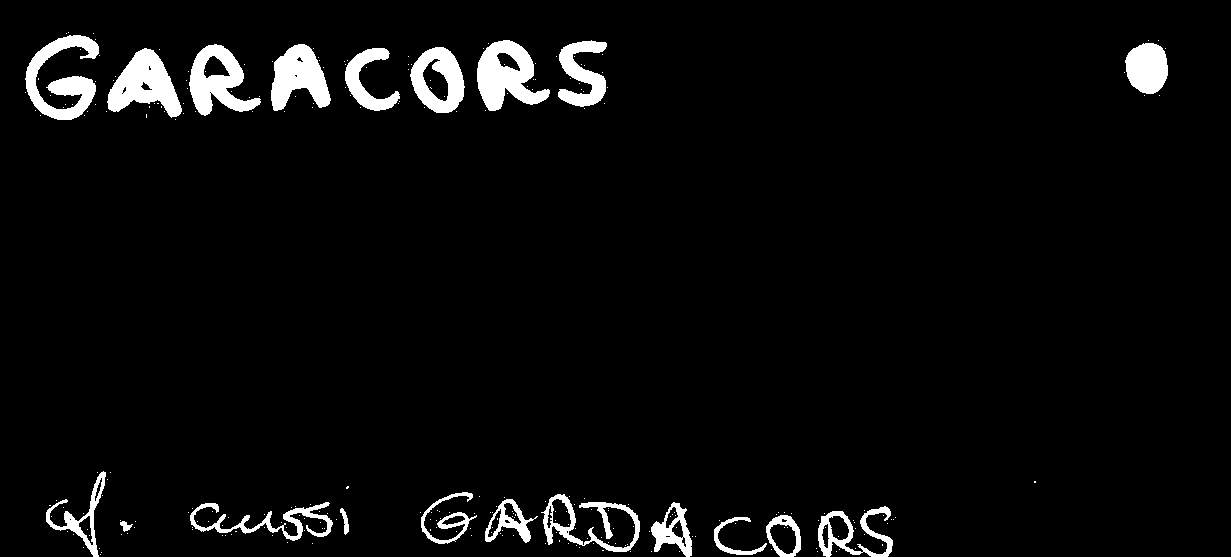 GARACORS
cf. aussi GARDACORS